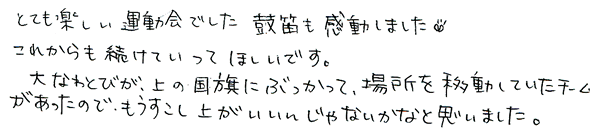 とても楽しい運動会でした 鼓笛も感動しました
これからも続けていってほしいです。
大なわとびが、上の国旗にぶつかって、場所を移動していたチーム
があったので、もうすこし上がいいんじゃないかなと思いました。